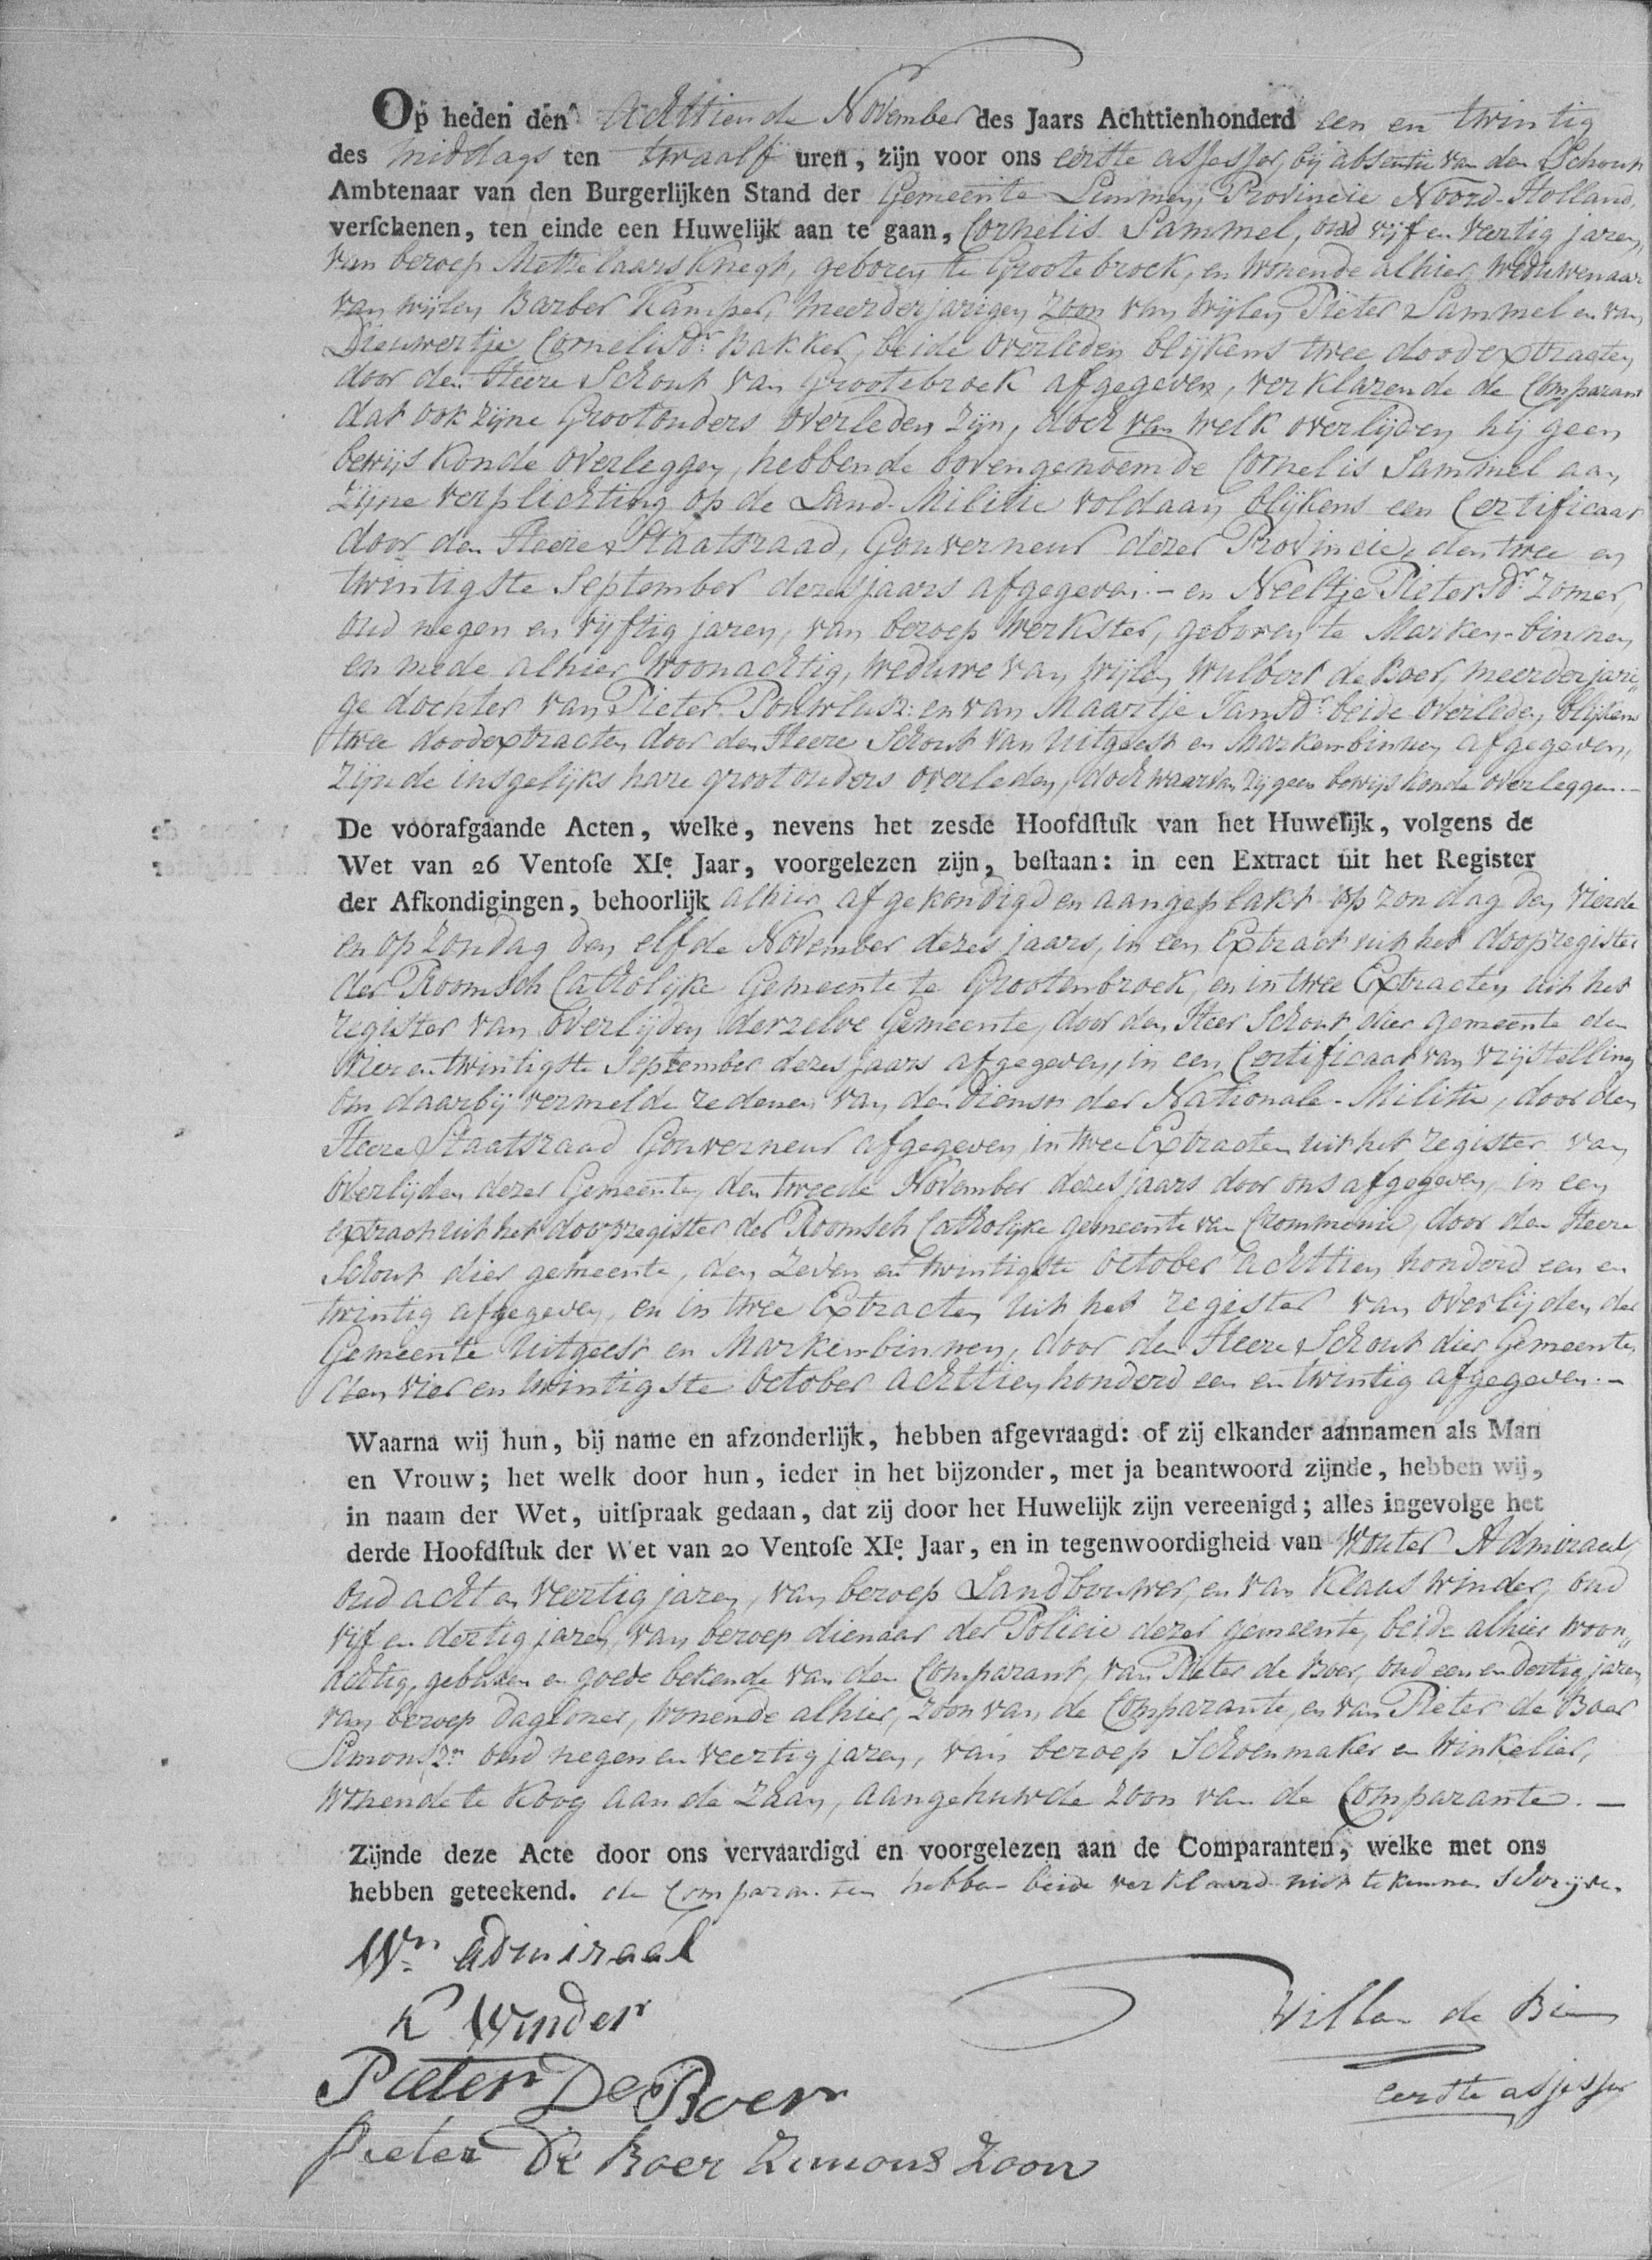 Op heden den Achttiende November des Jaars Achttienhonderd een en twintig
des middags ten twaalf uren, zijn voor ons eerste assessor, bij absentie van den Schout
Ambtenaar van den Burgerlijken Stand der Gemeente Limmen, Provincie Noord-Holland,
verschenen, ten einde een Huwelijk aan te gaan, Cornelis Sammel, oud vijf en veertig jaren,
van beroep Metzelaars Knegt, geboren te Grootebroek, en wonende alhier, Weduwenaar
van wijlen Barber Kamper, meerderjarigen zoon van wijlen Pieter Sammel en van
Dieuwertje Cornelisdr. Bakker, beide overleden blijkens twee doodextracten,
door den Heere Schout van Grootebroek afgegeven, verklarende de Comparant
dat ook zijne Grootouders overleden zijn, doch van welk overlijden hij geen
bewijs konde overleggen, hebbende bovengenoemde Cornelis Sammel aan
zijne verplichting op de Land-Militie voldaan, blijkens een Certificaat
door den Heere Staatsraad, Gouverneur dezer Provincie, den twee en
twintigste September dezes jaars afgegeven. - en Neeltje Pietersdr. Zomer,
oud negen en vijftig jaren, van beroep Werkster, geboren te Marken-binnen
en mede alhier woonachtig, weduwe van wijlen Wulbert de Boer, meerderjari„
ge dochter van Pieter Pouwlusz: en van Maartje Jansdr. beide overleden, blijkens
twee doodextracten door den Heere Schout van Uitgeest en Markenbinnen afgegeven,
zijnde insgelijks hare grootouders overleden, doch waarvan zij geen bewijs konde overleggen. -
De voorafgaande Acten, welke, nevens het zesde Hoofdstuk van het Huwelijk, volgens de
Wet van 26 Ventose XIe. Jaar, voorgelezen zijn, bestaan: in een Extract uit het Register
der Afkondigingen, behoorlijk alhier afgekondigd en aangeplakt op zondag den vierde
en op zondag den elfde November dezes jaars, in een Extract uit het doopregister
der Roomsch Catholijke Gemeente te Grootenbroek, en in twee Extracten uit het
register van overlijden derzelve Gemeente, door den Heer Schout dier gemeente den
vier en twintigste September dezes jaars afgegeven, in een Certificaat van vrijstelling
om daarbij vermelde redenen van den dienst der Nationale-Militie, door den
Heere Staatsraad Gouverneur afgegeven, in twee Extracten uit het register van
Overlijden dezer Gemeente, den tweede November dezes jaars door ons afgegeven, in een
extract uit het doopregister der Roomsch Catholijke gemeente van Crommenie, door den Heere
Schout dier gemeente, den zeven en twintigste October achttien honderd een en
twintig afgegeven, en in twee Extracten uit het register van overlijden der
Gemeente Uitgeest en Markenbinnen, door den Heere Schout dier Gemeente,
den vier en twintigste October achttienhonderd een en twintig afgegeven. -
Waarna wij hun, bij name en afzonderlijk, hebben afgevraagd: of zij elkander aannamen als Man
en Vrouw; het welk door hun, ieder in het bijzonder, met ja beantwoord zijnde, hebben wij,
in naam der Wet, uitspraak gedaan, dat zij door het Huwelijk zijn vereenigd; alles ingevolge het
derde Hoofdstuk der Wet van 20 Ventose XIe. Jaar, en in tegenwoordigheid van Wouter Admiraal,
oud acht en veertig jaren, van beroep Landbouwer, en van Klaas Winder, oud
vijf en dertig jaren, van beroep dienaar der Policie dezer gemeente, beide alhier woon„
achtig, gebuuren en goede bekende van den Comparant, van Pieter de Boer, oud een en dertig jaren,
van beroep dagloner, wonende alhier, zoon van de Comparante, en van Pieter de Boer
Simonszn. oud negen en veertig jaren, van beroep Schoenmaker en Winkelier,
wonende te Koog aan de Zaan, aangehuwde zoon van de Comparante. -
Zijnde deze Acte door ons vervaardigd en voorgelezen aan de Comparanten, welke met ons
hebben geteekend. de Comparanten hebben beide verklaard niet te kunnen schrijven.
Wr. Admiraal
K Winder
Willem de
Pieter De Boer
eerste assessor
Pieter De Boer Zimons Zoon